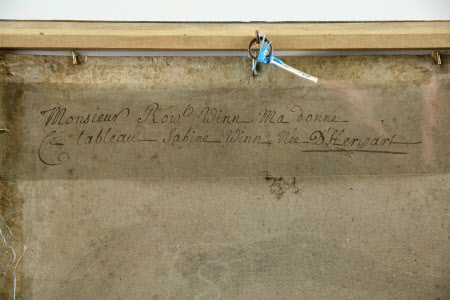 Monsieur Row^d Winn Ma donné
Ce tableau Sabine Winn Née D'Herwart